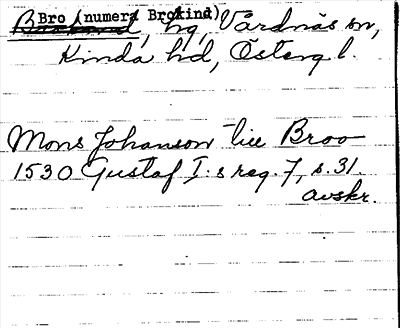 Bro (numera Brokind)
hg, Vårdnäs sn,
Kinda hd, Österg l.
Mons Johanson tiil Broo
1530 Gustaf I:s reg. 7, s. 31.
avskr.